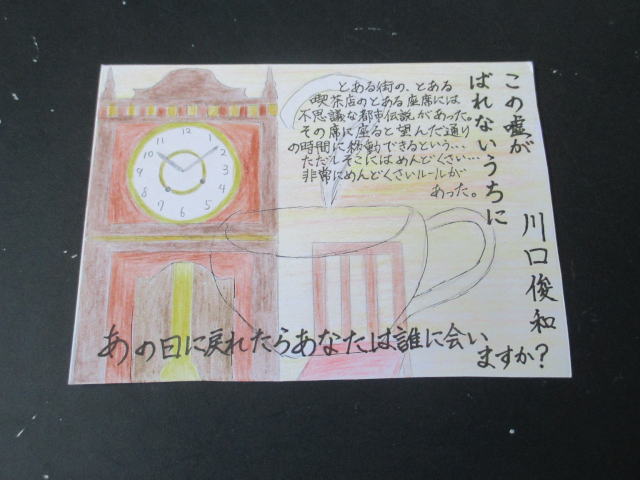 この嘘が
ばれないうちに
川口俊和
とある街の、とある
喫茶店のとある座席には
不思議な都市伝説があった。
その席に座ると望んだ通り
の時間に移動できるという…
ただしそこにはめんどくさい…
非常にめんどくさいルールが
あった。
12
1
2
3
4
5
6
7
8
9
10
11
あの日に戻れたらあなたは誰に会い
ますか?